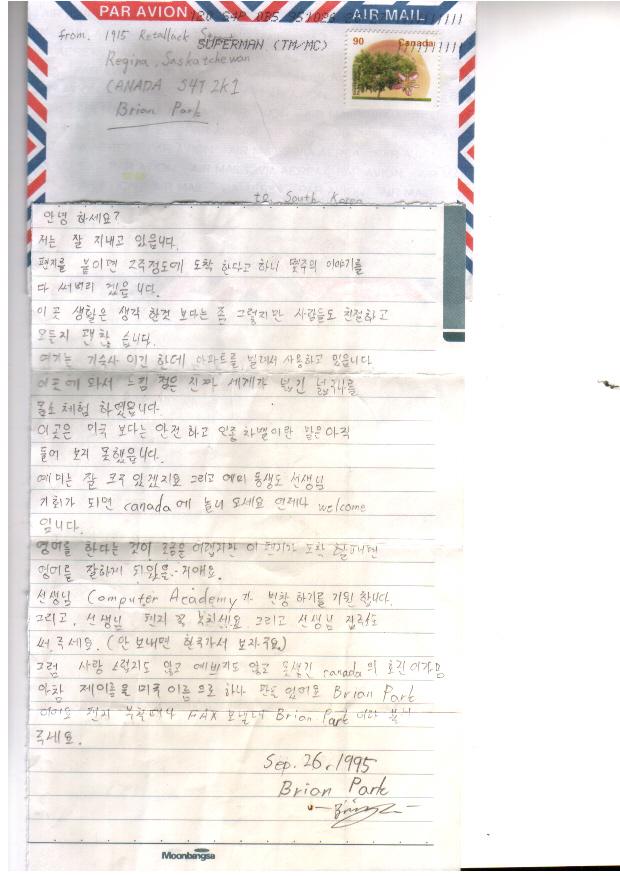 PAR AVION
AIR MAIL
SUPERMAN (TM/MC)
90 Canada
from. 1915 Retallack
Regina, Saskatchewan
CANADA S4T 2K1
Brian Park
to South Korea
안녕 하세요?
저는 잘 지내고 있읍니다.
편지를 붙이면 2주정도에 도착 한다고 하니 몇주의 이야기를
다 써버리 겠읍니다.
이곳 생활은 생각 한것 보다는 좀 그렇지만 사람들도 친절하고
모든지 괜찮습니다.
여기는 기숙사 이긴 한데 아파트를 빌려서 사용하고 있읍니다
이곳에 와서 느낀 점은 진짜 세계가 넓긴 넓구나를
몸소 체험 하였읍니다.
이곳은 미국 보다는 안전 하고 인종 차별이란 말은 아직
들어 보지 못했읍니다.
예미는 잘 크고 있겠지요 그리고 예미 동생도 선생님
기회가 되면 canada에 놀러 오세요 언제나 welcome
입니다.
영어를 한다는 것이 조금은 어렵지만 이 편지가 도착 할때면
영어를 잘하게 되있을 거예요.
선생님 Computer Academy가 번창 하기를 기원 합니다.
그리고, 선생님 편지 꼭 부치세요 그리고 선생님 집주소도
써 주세요. (안 보내면 한국가서 보자구요)
그럼 사랑 스럽지도 않고 예쁘지도 않고 못생긴 canada의 호킨이가
아참 제이름을 미국 이름 으로 하나 만들었어요 Brian Park
이에요 편지 부칠때나 FAX 보낼때 Brian Park 이라 불러
주세요.
Sep. 26. 1995
Brian Park
Moonbangsa